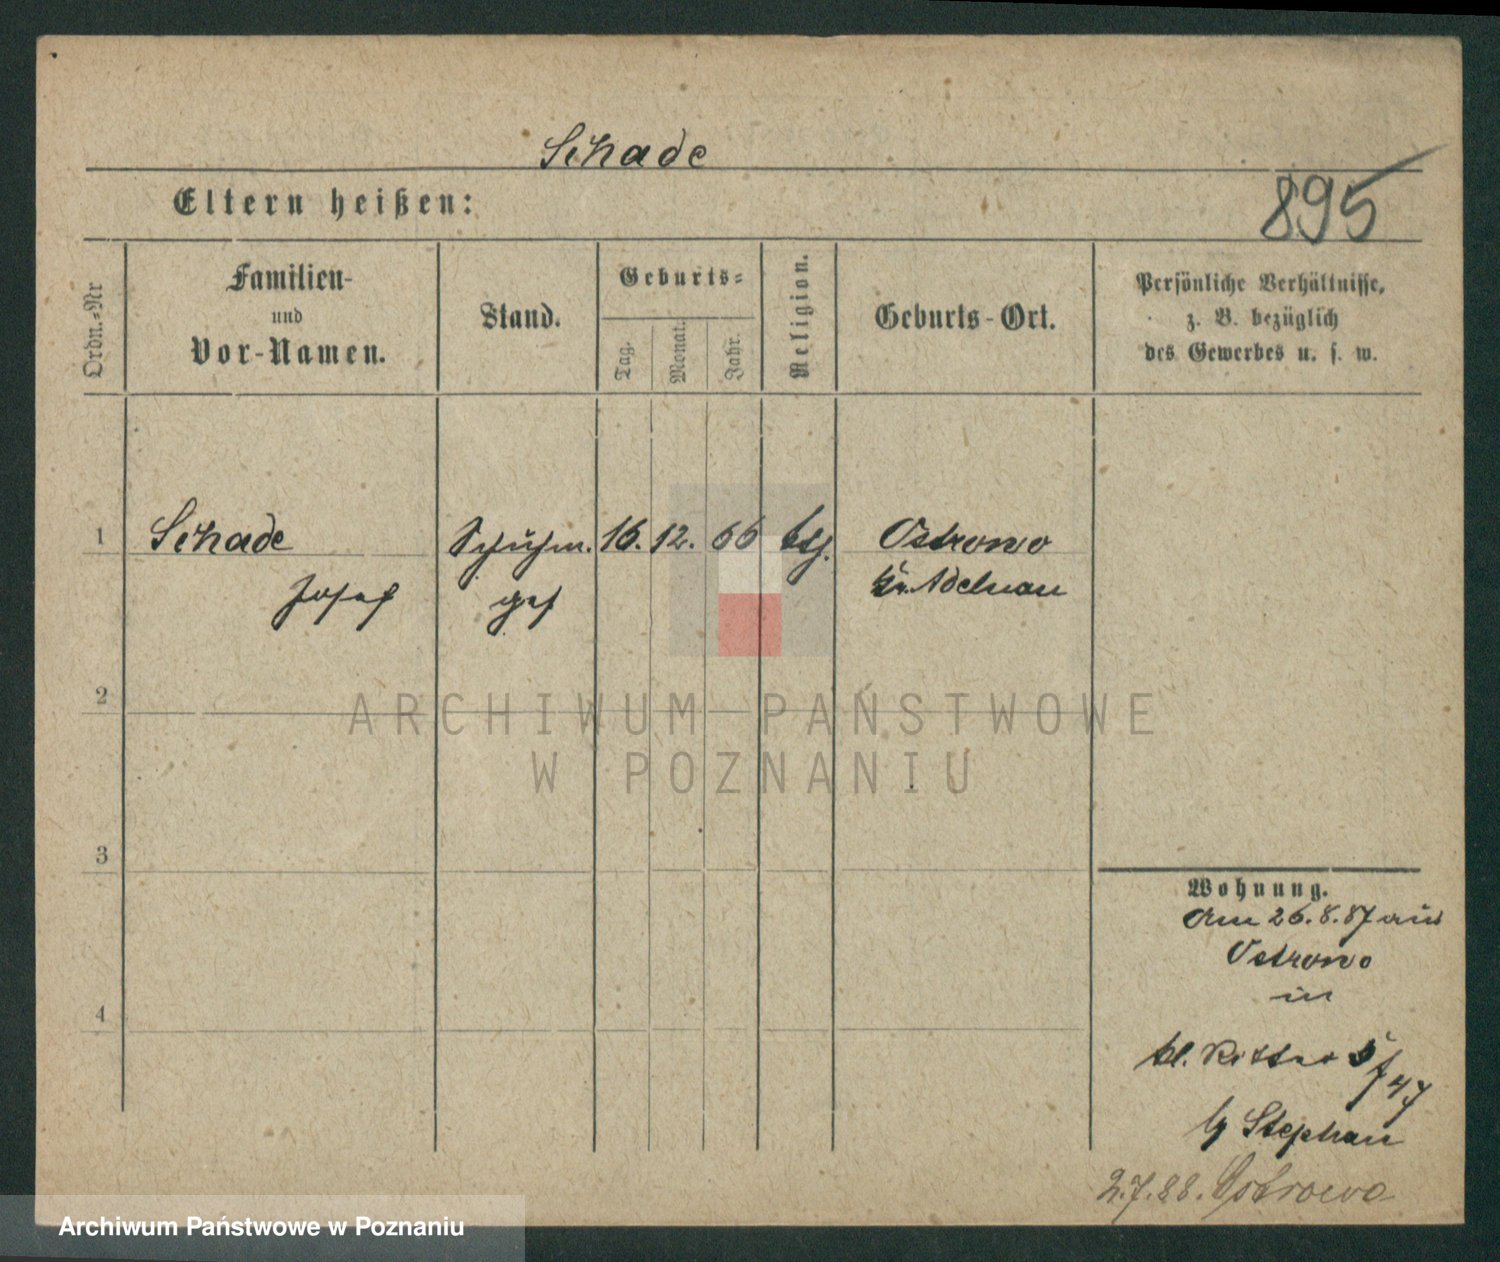 Schade
895
Eltern heißen:
Ordn.-Nr
Familien-
und
Vor-Namen.
Stand.
Geburts-
Tag.
Monat.
Jahr.
Religion.
Geburts-Ort.
Persönliche Verhältnisse,
z. B. bezüglich
des Gewerbes u. s. w.
1
Schade
Josef
Schuhm.
ges
16. 12. 66
kth.
Ostrowo
Kr. Adelnau
2
ARCHIWUM PAŃSTWOWE
W POZNANIU
3
4
Wohnung.
Am 26.8.87 aus
Ostrowo
in
kl. Ritter
b/ Stephan
2.7.88. Ostrowo
Archiwum Państwowe w Poznaniu